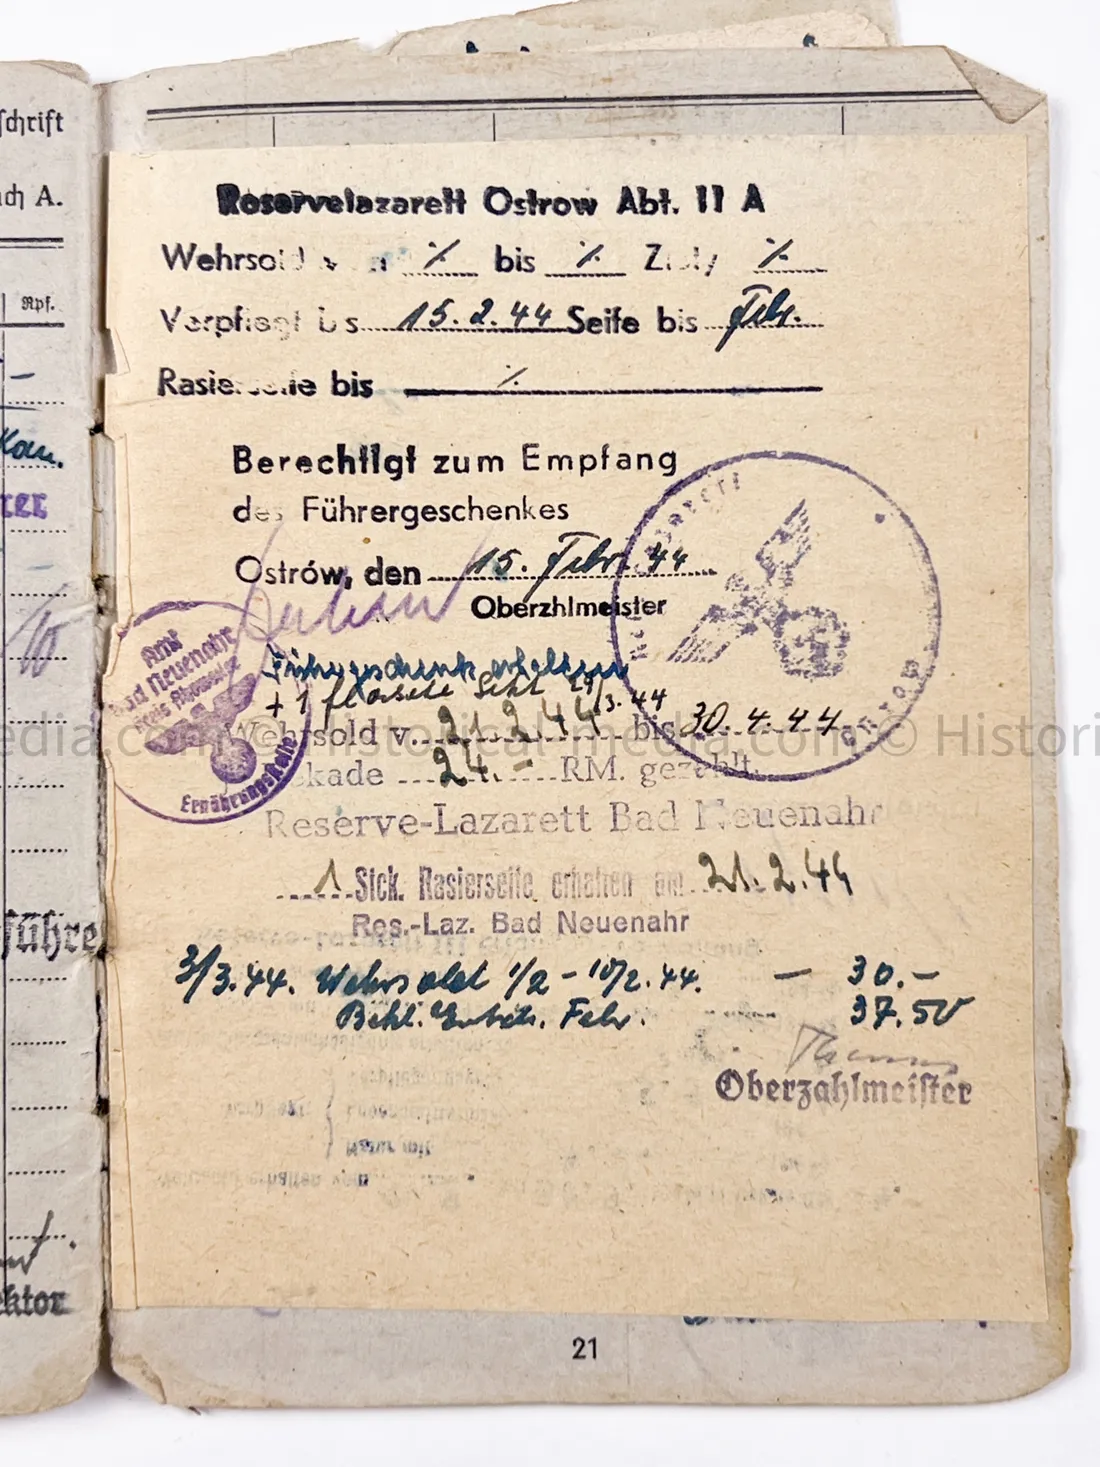 schrift
ach A.
Rpf.
Reservelazarett Ostrow Abt. II A
Wehrsold von ·/. bis ·/. Zloty ·/.
Verpflegt bis 15.2.44 Seife bis Febr.
Rasierseife bis ·/.
Berechtigt zum Empfang
des Führergeschenkes
Ostrów, den 15. Febr. 44
Oberzhlmeister
Führergeschenk erhalten
+ 1 Flasche Sekt 29/3.44
Amt
Bad Neuenahr
Kreis Ahrweiler
Ernährungsstelle
Ostrow
Wehrsold v. 21.2.44 bis 30.4.44
24.- RM. gezahlt.
Reserve-Lazarett Bad Neuenahr
1 Stck. Rasierseife erhalten am 21.2.44
Res.-Laz. Bad Neuenahr
3/3.44. Wehrsold 1/2 - 10/2.44. — 30.-
Febr. 37.50
Oberzahlmeister
führe
ektor
21
edia.com © Historical-media.com © Histori